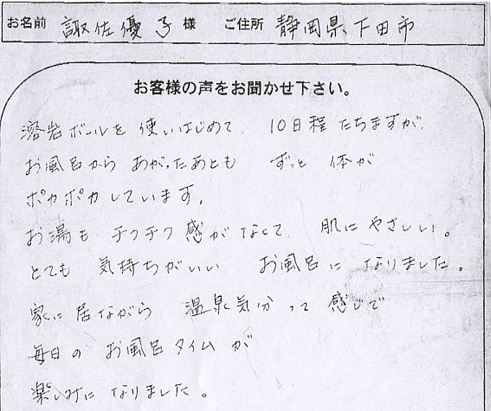 お名前 諏佐優子 様 ご住所 静岡県下田市
お客様の声をお聞かせ下さい。
溶岩ボールを 使いはじめて、 10日程 たちますが、
お風呂から あがったあとも ずっと 体が
ポカポカしています。
お湯も チクチク感が なくて 肌に やさしい。
とても 気持ちがいい お風呂に なりました。
家に 居ながら 温泉気分って 感じで
毎日の お風呂タイムが
楽しみになりました。